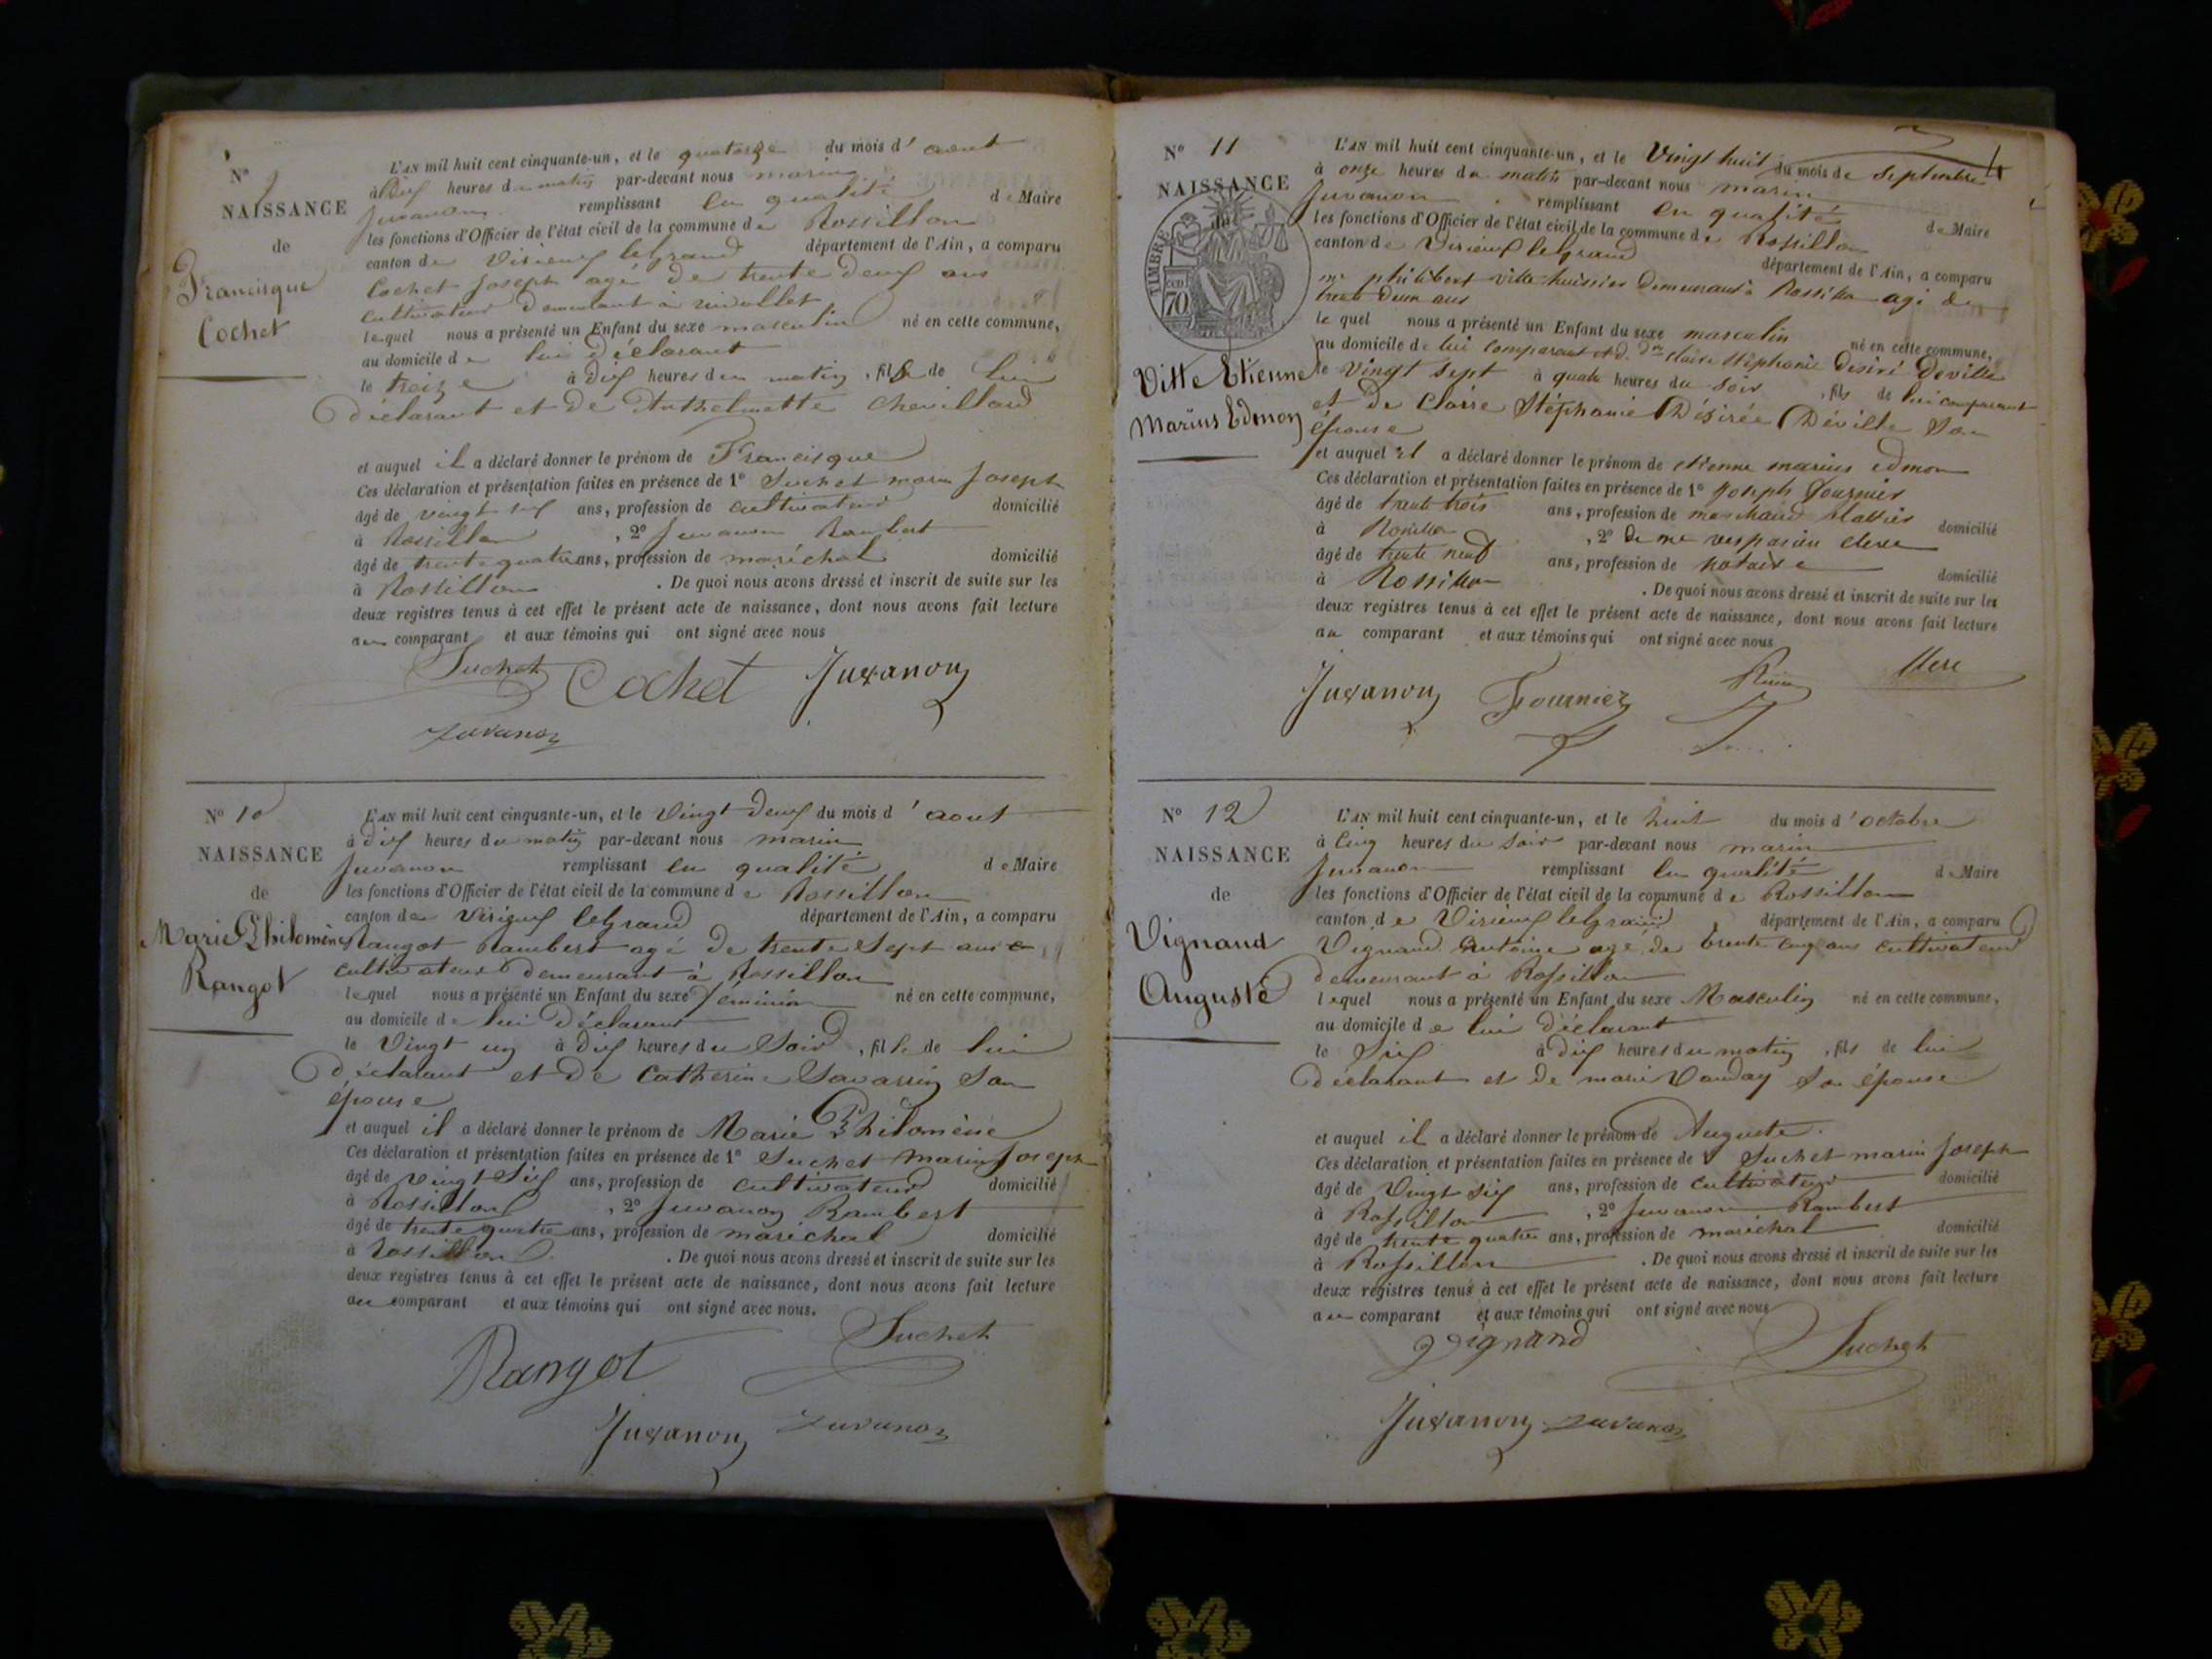 N° 9
NAISSANCE
de
Francisque
Cochet
L'AN mil huit cent cinquante-un, et le quatorze du mois d'aout
à dix heures du matin par-devant nous marin
Juvanon remplissant en qualité de Maire
les fonctions d'Officier de l'état civil de la commune de Rossillon
canton de Virieux legrand département de l'Ain, a comparu
Cochet Joseph agé de trente deux ans
cultivateur demeurant a
lequel nous a présenté un Enfant du sexe masculin né en cette commune,
au domicile de lui déclarant
le treize à dix heures du matin, fils de lui
déclarant et de Anthelmette Chevillard
et auquel il a déclaré donner le prénom de Francisque
Ces déclaration et présentation faites en présence de 1° Suchet marin Joseph
âgé de vingt six ans, profession de cultivateur domicilié
à Rossillon, 2° Juvanon Rambert
âgé de trente quatre ans, profession de maréchal domicilié
à Rossillon. De quoi nous avons dressé et inscrit de suite sur les
deux registres tenus à cet effet le présent acte de naissance, dont nous avons fait lecture
au comparant et aux témoins qui ont signé avec nous
Suchet Cochet Juvanon
Juvanon
N° 10
NAISSANCE
de
Marie Philomène
Rangot
L'AN mil huit cent cinquante-un, et le Vingt deux du mois d'aout
à dix heures du matin par-devant nous marin
Juvanon remplissant en qualité de Maire
les fonctions d'Officier de l'état civil de la commune de Rossillon
canton de Virieux legrand département de l'Ain, a comparu
Rangot Rambert agé de trente Sept ans
cultivateur demeurant à Rossillon
lequel nous a présenté un Enfant du sexe féminin né en cette commune,
au domicile de lui déclarant
le Vingt un à dix heures du Soir, fille de lui
déclarant et de Catherine Savarrin Son
épouse
et auquel il a déclaré donner le prénom de Marie Philomène
Ces déclaration et présentation faites en présence de 1° Suchet Marin Joseph
âgé de Vingt Six ans, profession de cultivateur domicilié
à Rossillon, 2° Juvanon Rambert
âgé de trente quatre ans, profession de maréchal domicilié
à Rossillon. De quoi nous avons dressé et inscrit de suite sur les
deux registres tenus à cet effet le présent acte de naissance, dont nous avons fait lecture
au comparant et aux témoins qui ont signé avec nous.
Rangot Suchet
Juvanon Juvanon
4
N° 11
NAISSANCE
de
TIMBRE
70
Vitte Etienne
Marius Edmon
L'AN mil huit cent cinquante-un, et le Vingt huit du mois de Septembre
à onze heures du matin par-devant nous marin
Juvanon remplissant en qualité de Maire
les fonctions d'Officier de l'état civil de la commune de Rossillon
canton de Virieux legrand département de l'Ain, a comparu
me philibert Vitte huissier demeurant à Rossillon agé de
trente deux ans
le quel nous a présenté un Enfant du sexe masculin né en cette commune,
au domicile de lui comparant et d. dme Claire Stéphanie Désiré Deville
le Vingt sept à quatre heures du Soir, fils de lui comparant
et de Claire Stéphanie Désirée Déville Son
épouse
et auquel il a déclaré donner le prénom de etienne marius edmon
Ces déclaration et présentation faites en présence de 1° Joseph Fournier
âgé de trente trois ans, profession de marchand domicilié
à Rossillon, 2° de me vespasien clerc
âgé de trente neuf ans, profession de notaire domicilié
à Rossillon. De quoi nous avons dressé et inscrit de suite sur les
deux registres tenus à cet effet le présent acte de naissance, dont nous avons fait lecture
au comparant et aux témoins qui ont signé avec nous
Juvanon Fournier Clerc
N° 12
NAISSANCE
de
Vignand
Auguste
L'AN mil huit cent cinquante-un, et le huit du mois d'octobre
à Cinq heures du Soir par-devant nous marin
Juvanon remplissant en qualité de Maire
les fonctions d'Officier de l'état civil de la commune de Rossillon
canton de Virieux legrand département de l'Ain, a comparu
Vignand Antoine agé de trente cinq ans cultivateur
demeurant à Rossillon
lequel nous a présenté un Enfant du sexe Masculin né en cette commune,
au domicile de lui déclarant
le Six à dix heures du matin, fils de lui
déclarant et de marie Vanday Son épouse
et auquel il a déclaré donner le prénom de Auguste.
Ces déclaration et présentation faites en présence de 1° Suchet marin Joseph
âgé de Vingt Six ans, profession de cultivateur domicilié
à Rossillon, 2° Juvanon Rambert
âgé de trente quatre ans, profession de maréchal domicilié
à Rossillon. De quoi nous avons dressé et inscrit de suite sur les
deux registres tenus à cet effet le présent acte de naissance, dont nous avons fait lecture
au comparant et aux témoins qui ont signé avec nous
Vignand Suchet
Juvanon Juvanon